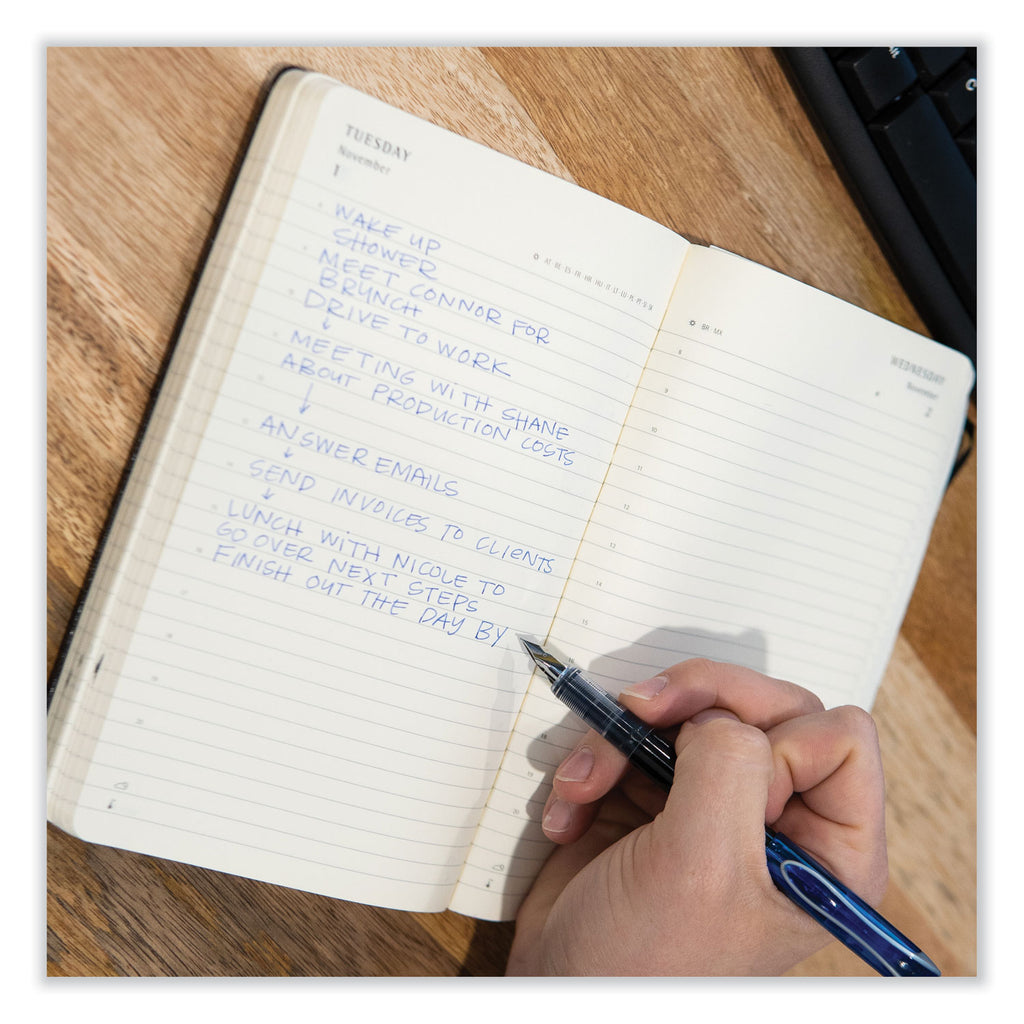 TUESDAY
November
1
WAKE UP
SHOWER
MEET CONNOR FOR
BRUNCH
DRIVE TO WORK
↓
MEETING WITH SHANE
ABOUT PRODUCTION COSTS
↓
ANSWER EMAILS
↓
SEND INVOICES TO CLIENTS
↓
LUNCH WITH NICOLE TO
GO OVER NEXT STEPS
FINISH OUT THE DAY BY
18
19
20
BR · MX
WEDNESDAY
November
2
8
9
10
11
12
13
14
15
16
18
19
20